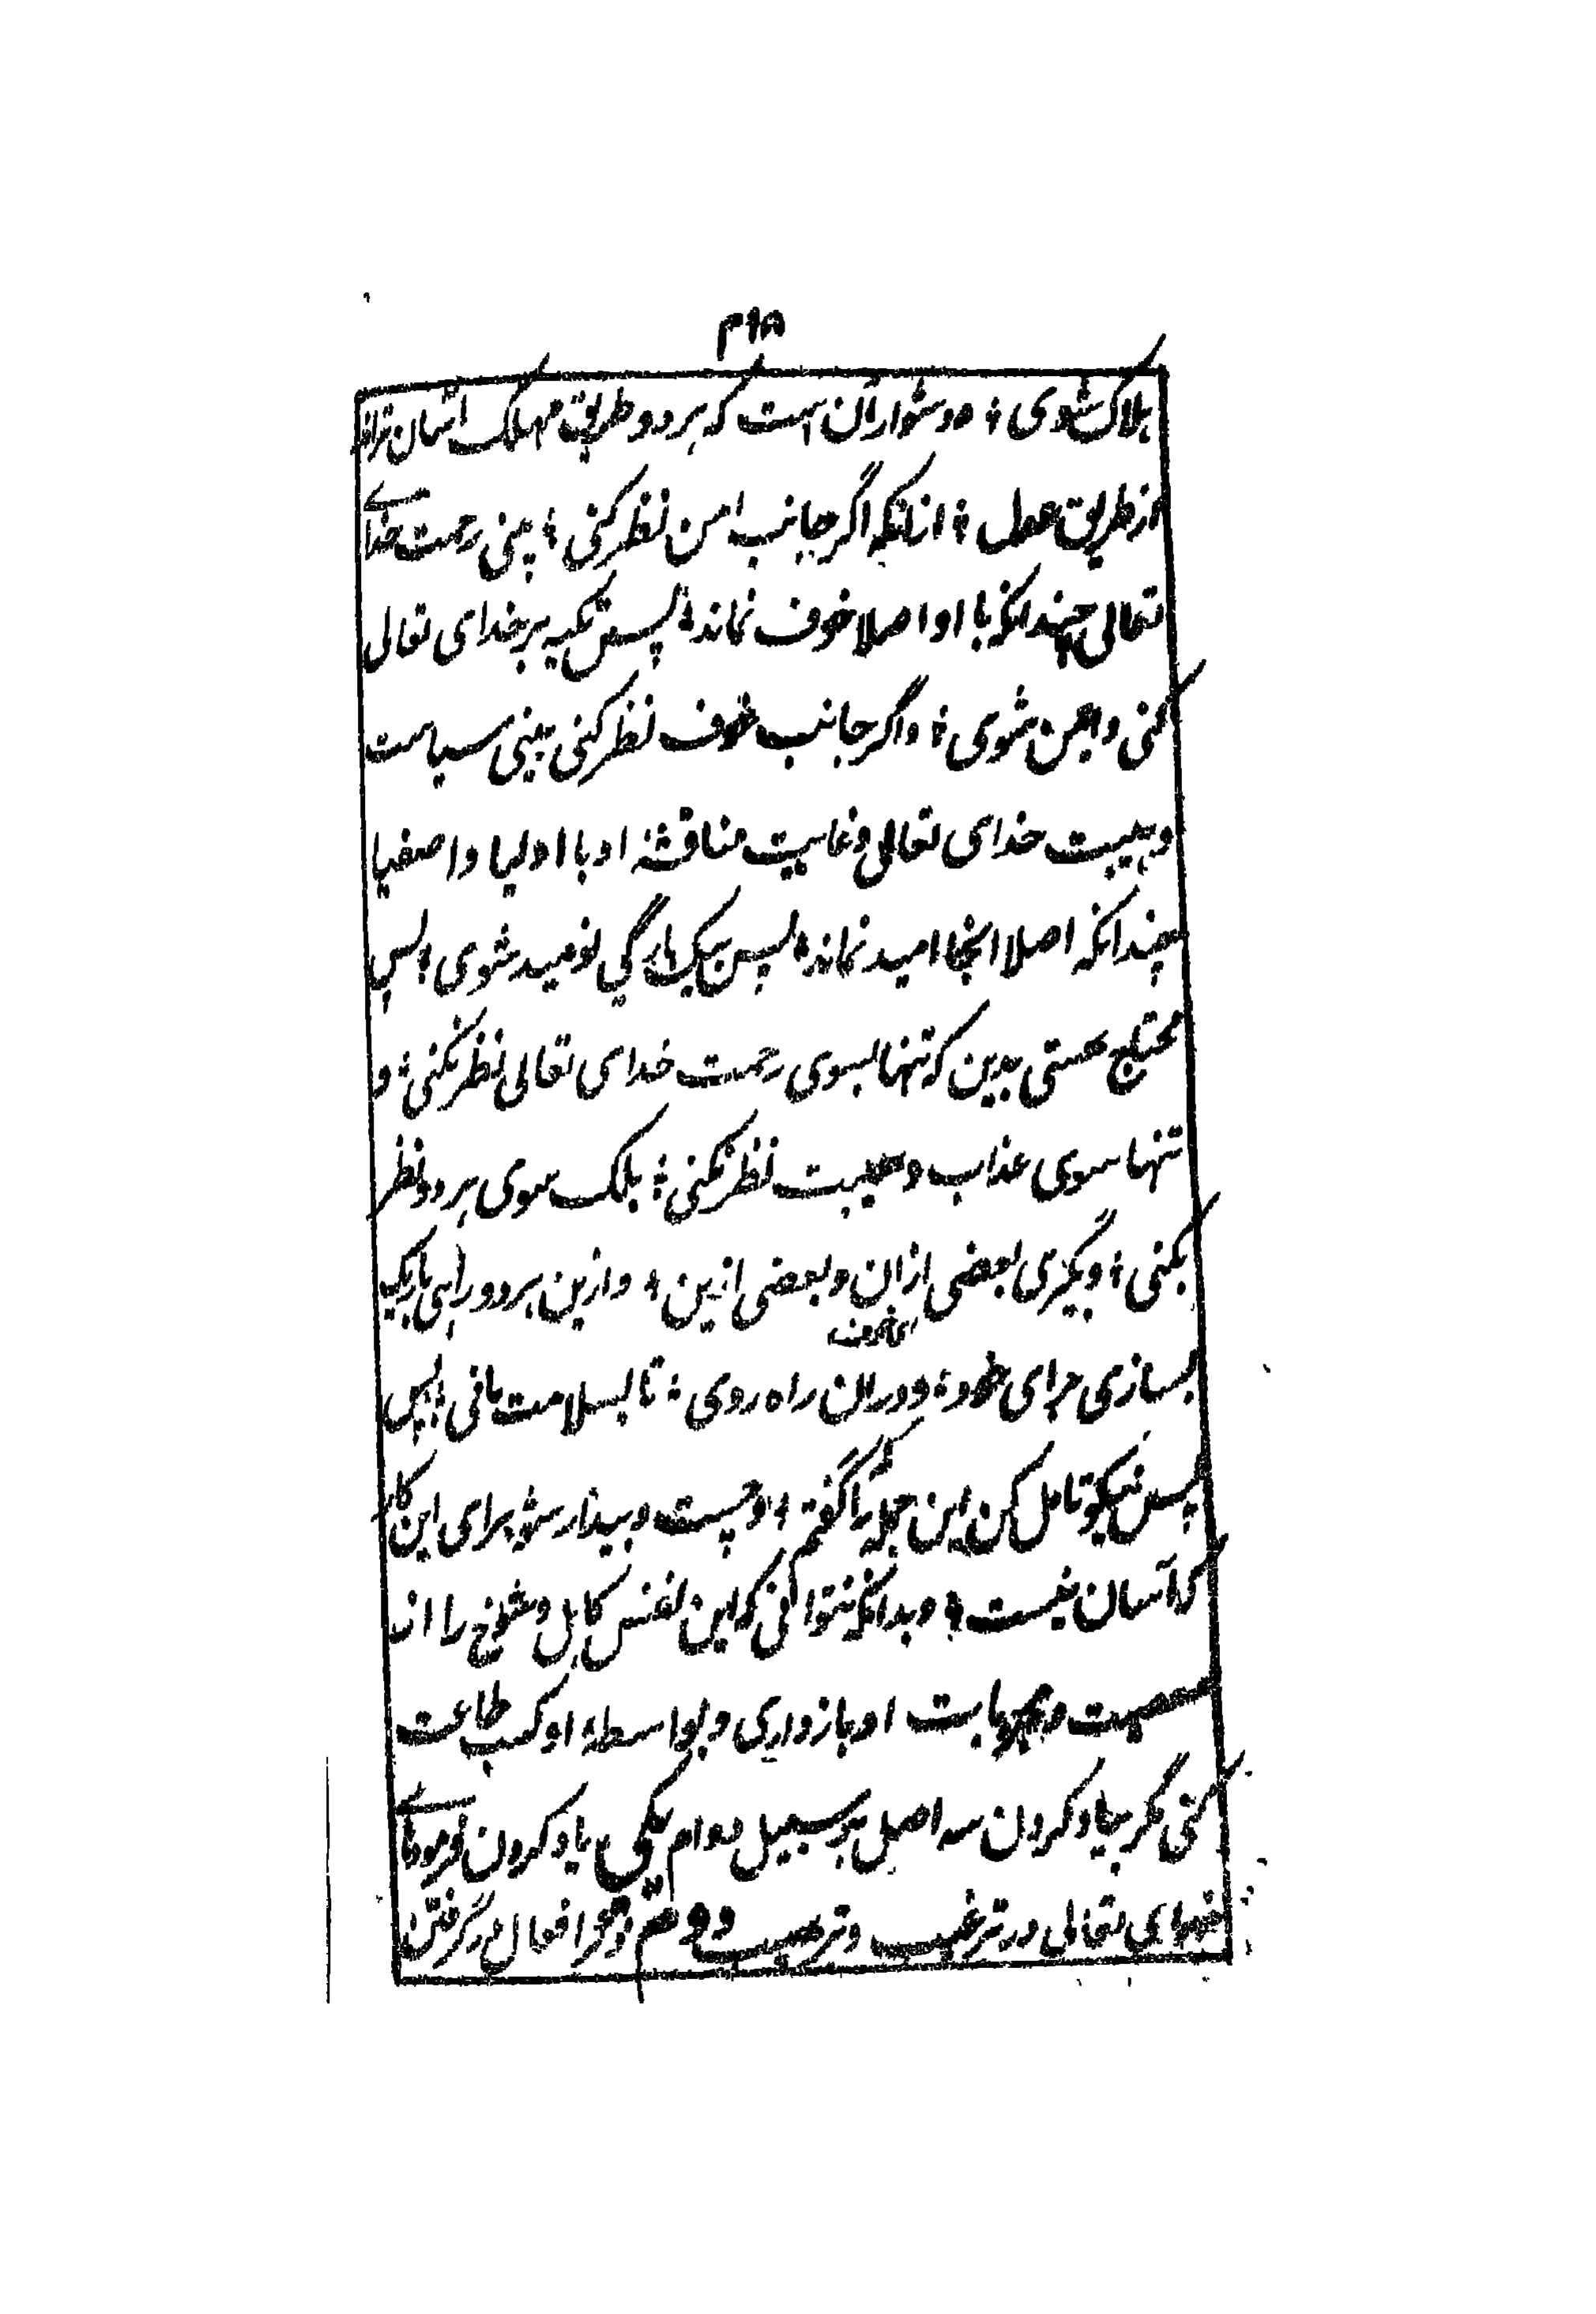 ۴۱۵
ہلاک شوی ؛ و دشوار آن است کہ ہر دو طریق مہلک آسان تراند
از طریق عدل ؛ ازانکہ اگر جانب امن نظر کنی ؛ بینی رحمت خدائے
تعالی چندانکہ با او اصلا خوف نماند ؛ پس تکیہ بر خدای تعالی
کنی و ایمن شوی ؛ و اگر جانب خوف نظر کنی بینی سیاست
و ہیبت خدای تعالی و غایت مناقشہ او با اولیا و اصفیا
چندانکہ اصلا اینجا امید نماند ؛ پس بیک بارگی نومید شوی ؛ پس
محتاج ہستی بدین کہ تنہا بسوی رحمت خدای تعالی نظر نکنی ؛ و
تنہا سوی عذاب و ہیبت نظر نکنی ؛ بلک سوی ہر دو نظر
بکنی ؛ و بگیری بعضی ازان و بعضی ازین ؛ و ازین ہر دو راہی باریک
بسازی برای خود ؛ و دران راہ روی ؛ تا بسلامت مانی ؛ پس
پس نیکو تامل کن این جملہ را کہ گفتم ؛ و چست و بیدار شو ؛ برای این کار
کہ آسان نیست ؛ و بدانکہ نتوانی کہ این نفس کاہل و شوخ را از
معصیت و محبوبات او بازداری و بواسطہ او کسب طاعت
کنی مگر بیاد کردن سہ اصل بر سبیل دوام یکی یاد کردن فرمودہائے
خدای تعالی در ترغیب و ترہیب دوم ذکر افعال در گرفتن